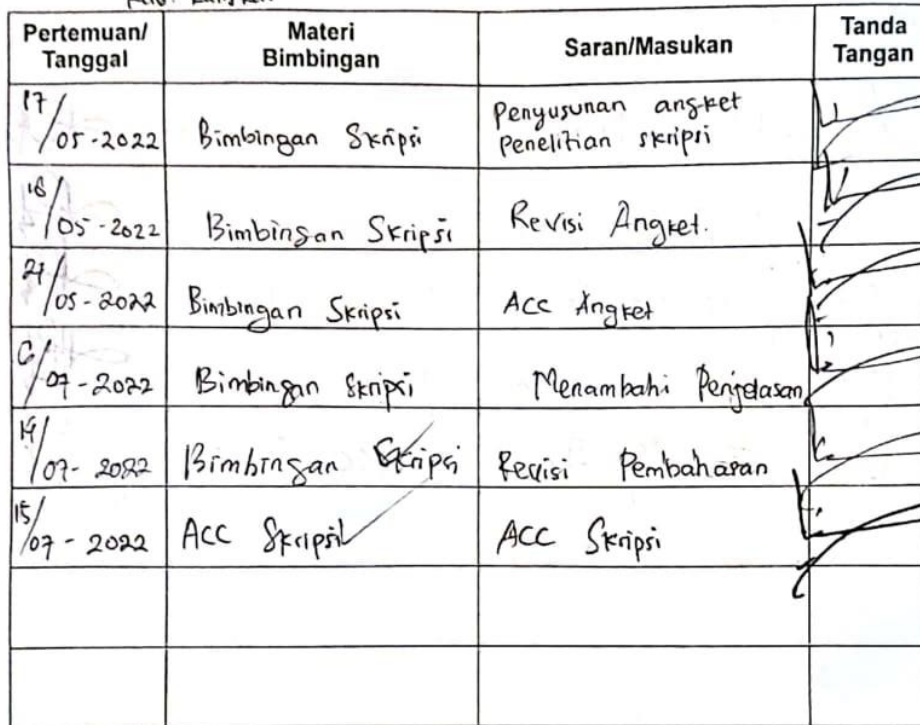 Pertemuan/ Tanggal Materi Bimbingan Saran/Masukan Tanda Tangan
17/05-2022 Bimbingan Skripsi Penyusunan angket
Penelitian skripsi
18/05-2022 Bimbingan Skripsi Revisi Angket.
21/05-2022 Bimbingan Skripsi ACC Angket
6/07-2022 Bimbingan Skripsi Menambahi Penjelasan
14/07-2022 Bimbingan Skripsi Revisi Pembahasan
15/07-2022 ACC Skripsi ACC Skripsi